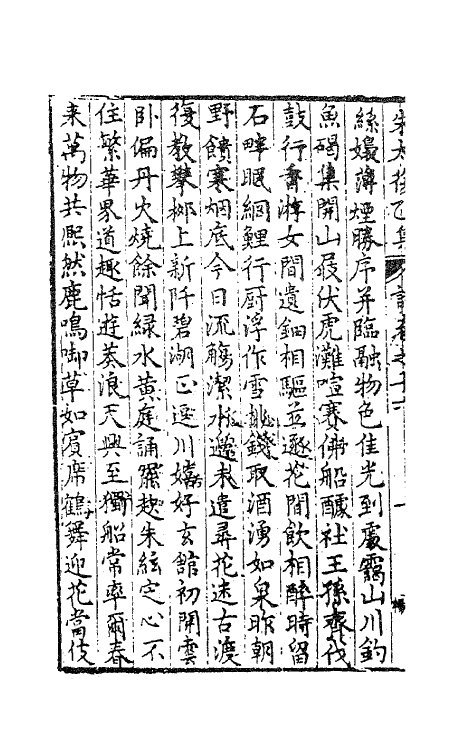 絲嬝薄煙勝序并臨融物色佳光到處靄山川釣
魚碣集開山屐伏虎灘喧賽佛船醵社王孫齊伐
鼓行香游女間遺鈿相驅並逐花間飲相醉時留
石畔眠網鯉行厨浮作雪挑錢取酒湧如泉昨朝
野饋寒烟底今日流觴潔水邊未遣尋花迷古渡
復教攀栁上新阡碧湖正遶川嬉好玄館初開雲
卧偏丹火燒餘聞綠水黃庭誦罷趂朱絃定心不
住繁華界道趣恬遊莽浪天興至獨船常率爾春
来萬物共熈然鹿鳴啣草如賔席鶴舞迎花當伎